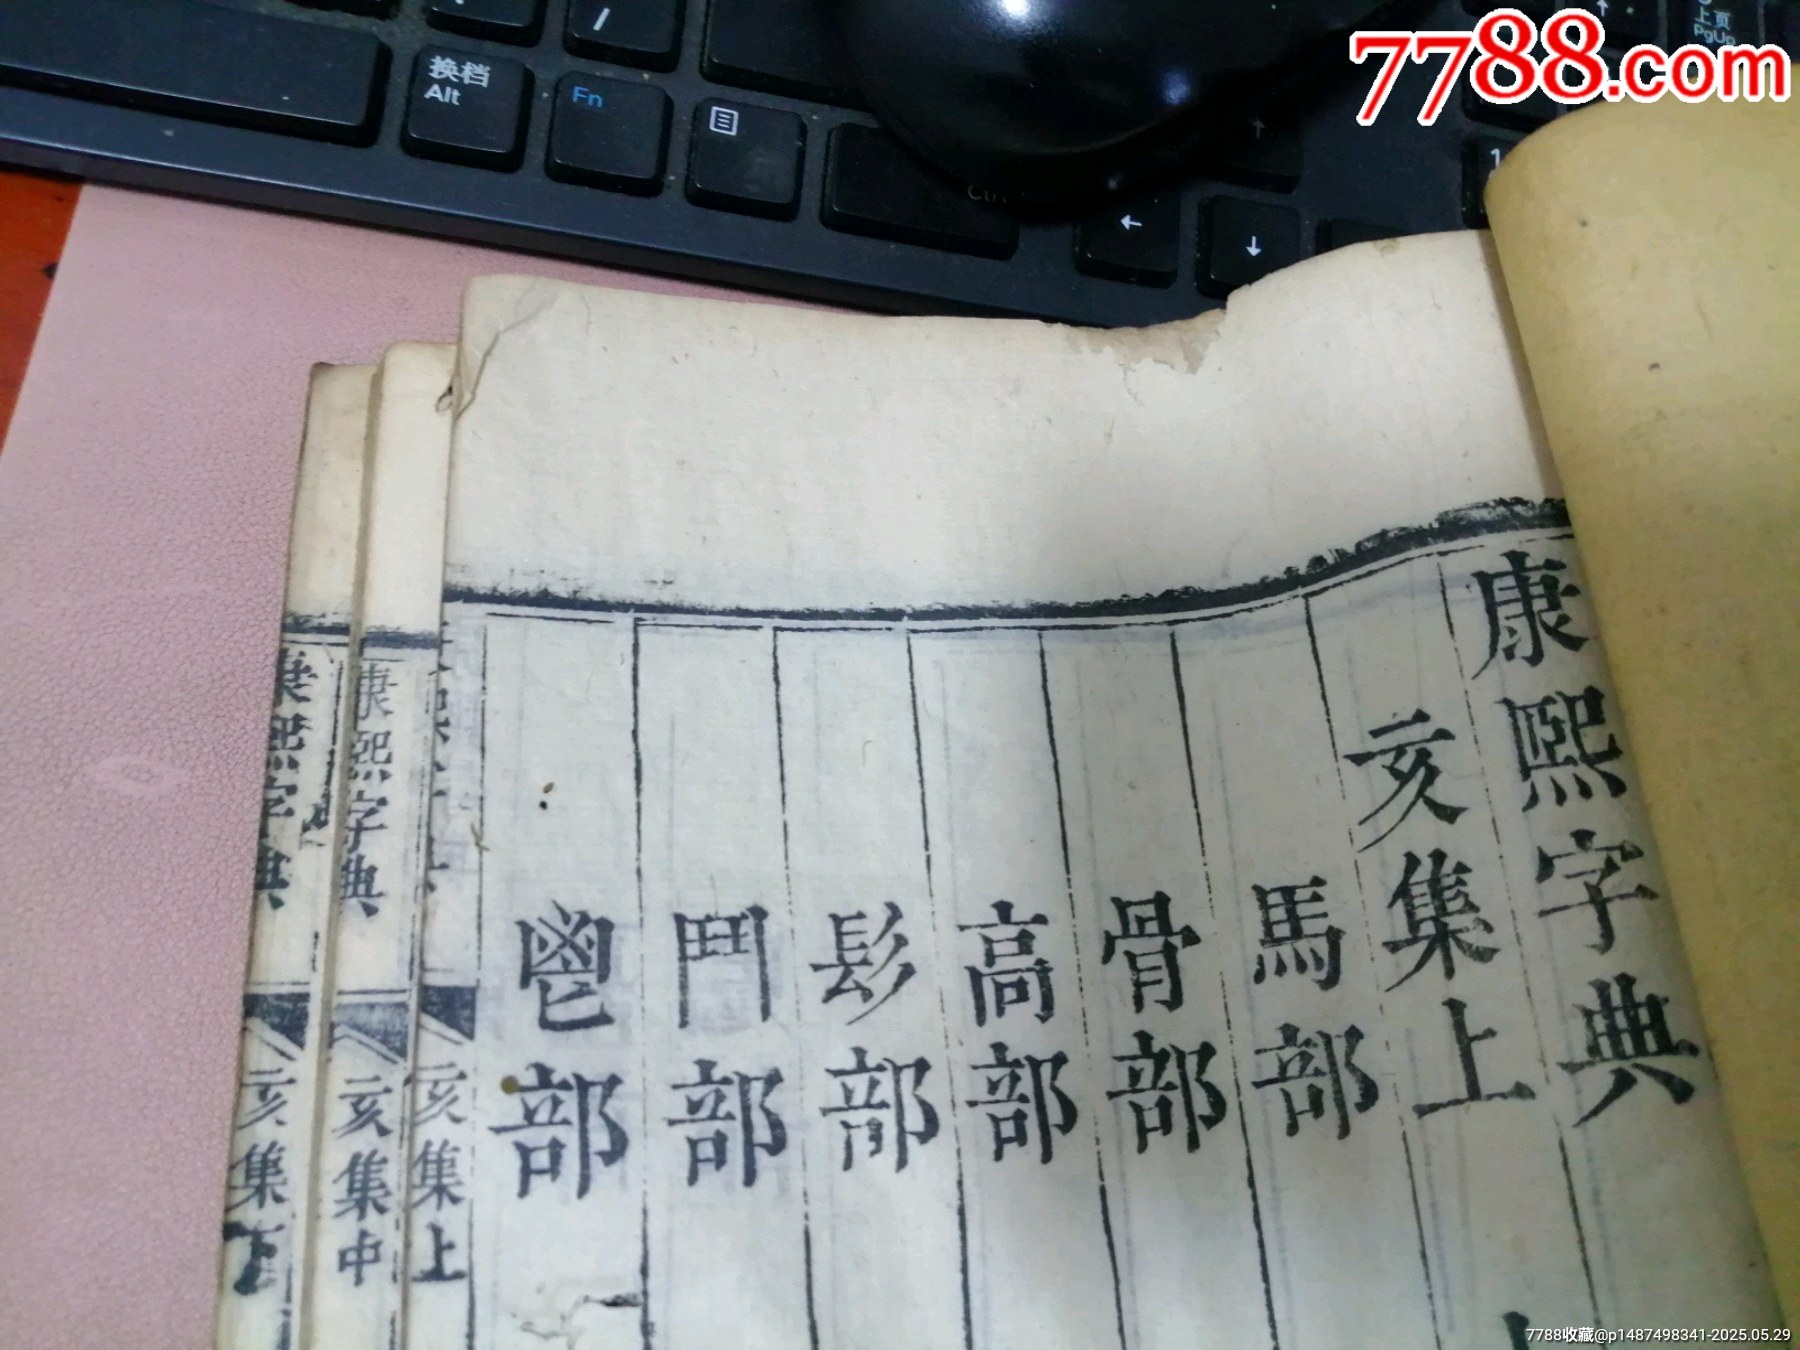 7788.com
换档
Alt
Fn
Ctrl
上页
PgUp
康熙字典
亥集上
馬部
骨部
高部
髟部
鬥部
鬯部
亥集上
康熙字典
亥集中
康熙字典
亥集下
7788收藏@p1487498341-2025.05.29